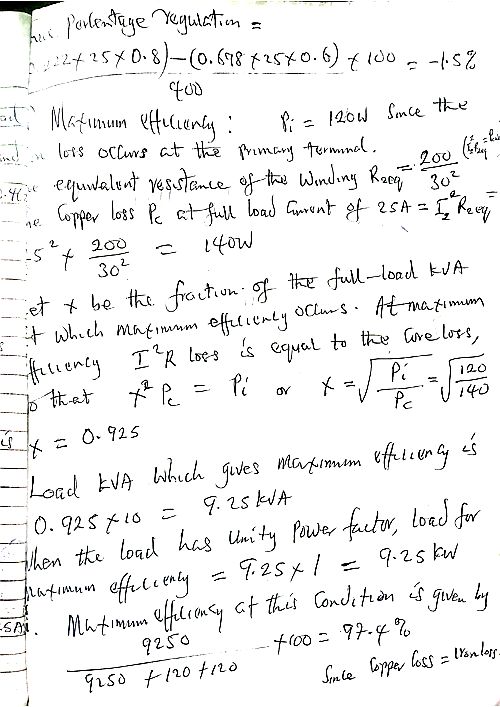 Percentage regulation =
.222 × 25 × 0.8) – (0.698 × 25 × 0.6) × 100 = -1.5%
400
Maximum efficiency : Pi = 120W Since the
loss occurs at the primary terminal.
equivalent resistance of the winding R2eq = 200/30²
Copper loss Pc at full load current of 25A = I2² R2eq =
5² × 200/30² = 140W
et x be the fraction of the full-load kVA
t which maximum efficiency occurs. At maximum
fficiency I²R loss is equal to the core loss,
o that x² Pc = Pi or x = √Pi/Pc = √120/140
x = 0.925
Load kVA which gives maximum efficiency is
0.925 × 10 = 9.25 kVA
When the load has unity power factor, load for
maximum efficiency = 9.25 × 1 = 9.25 kW
Maximum efficiency at this condition is given by
9250
9250 + 120 + 120 × 100 = 97.4%
Since copper loss = iron loss.